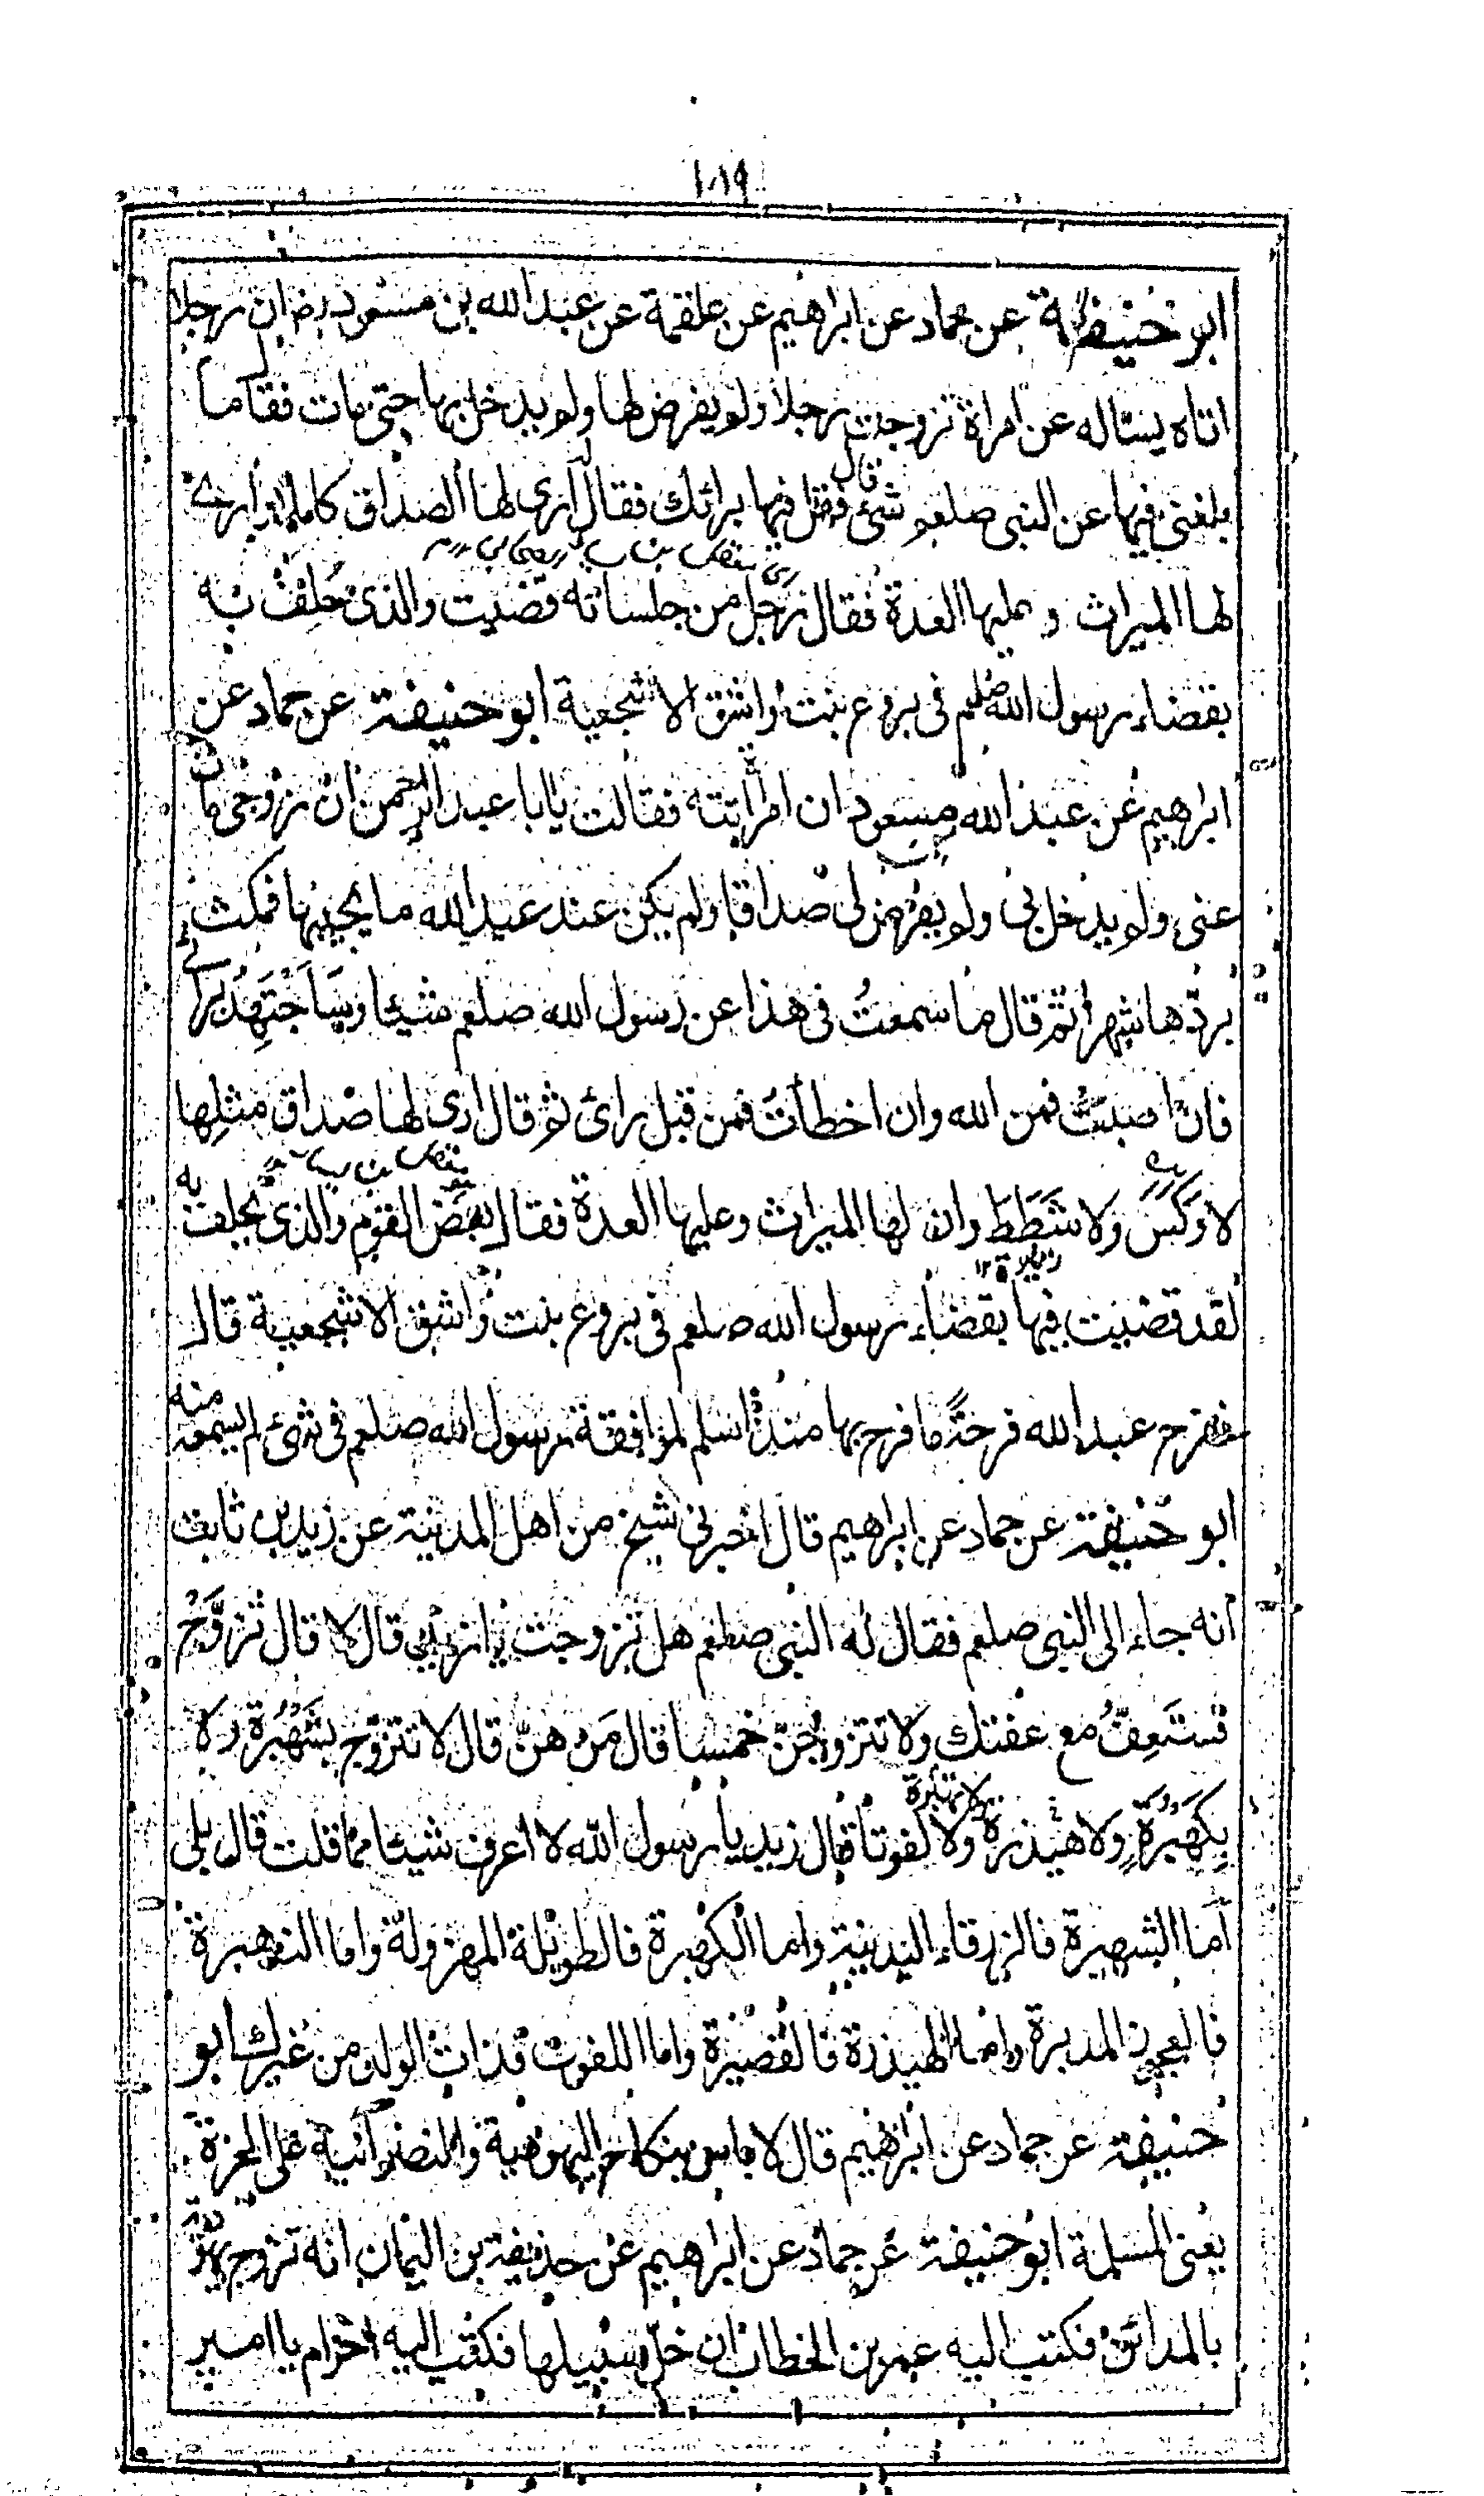 ١٨٩
ابو حنيفة عن حماد عن ابراهيم عن علقمة عن عبد الله بن مسعود رض ان رجلا
اتاه يسئاله عن امراة تزوجت رجلا ولم يفرض لها ولم يدخل بها حتى مات فقال ما
بلغني فيها عن النبي صلعم شئ قال فقل فيها برائك فقال ارى لها الصداق كاملا وارى
لها الميراث وعليها العدة فقال رجل من جلسائه قضيت والذي حلف به
بقضاء رسول الله صلعم في بروع بنت واشق الاشجعية ابو حنيفة عن حماد عن
ابراهيم عن عبد الله بن مسعود ان امراة اتته فقالت يا ابا عبد الرحمن ان زوجي مات
عني ولم يدخل بي ولم يفرض لي صداقا ولم يكن عند عبد الله ما يجيبها فمكث
يردّها شهرا ثم قال ما سمعتُ في هذا عن رسول الله صلعم شيئا وسَاَجْتَهِدُ برائے
فان اصبتُ فمن الله وان اخطأتُ فمن قبل رائ ثم قال ارى لها صداق مثلها
لا وَكَسَ ولا شَطَطَ وان لها الميراث وعليها العدة فقال بعض القوم والذي يحلف به
لقد قضيت فيها بقضاء رسول الله صلعم في بروع بنت واشق الاشجعية قال
ففرح عبد الله فرحةً ما فرح بها منذ اسلم لموافقة رسول الله صلعم في شئ لم يسمعه منه
ابو حنيفة عن حماد عن ابراهيم قال اخبرني شيخ من اهل المدينة عن زيد بن ثابت
انه جاء الى النبي صلعم فقال له النبي صلعم هل تزوجت يا زيد قال لا قال تزوَّجْ
تستَعِفُّ مع عفتك ولا تتزوجُنّ خمسا قال مَن هنّ قال لا تتزوّج بشَهْبَرة ولا
بِكَهْبَرَةٍ ولا نهبرة ولا هَيْذرة ولا لفوتاً قال زيد يا رسول الله لا اعرف شيئا مما قلت قال بلى
اما الشهبرة فالزرقاء البدينة واما الكهبرة فالطويلة المهزولة واما النهبرة
فالعجوز المدبرة واما الهيذرة فالقصيرة واما اللفوت فذات الولد من غيرك ابو
حنيفة عن حماد عن ابراهيم قال لا باس بنكاح اليهودية والنصرانية على الحرة
يعنى المسلمة ابو حنيفة عن حماد عن ابراهيم عن حذيفة بن اليمان انه تزوج يهودية
بالمدائن فكتب اليه عمر بن الخطاب ان خلّ سبيلها فكتب اليه احرام يا امير